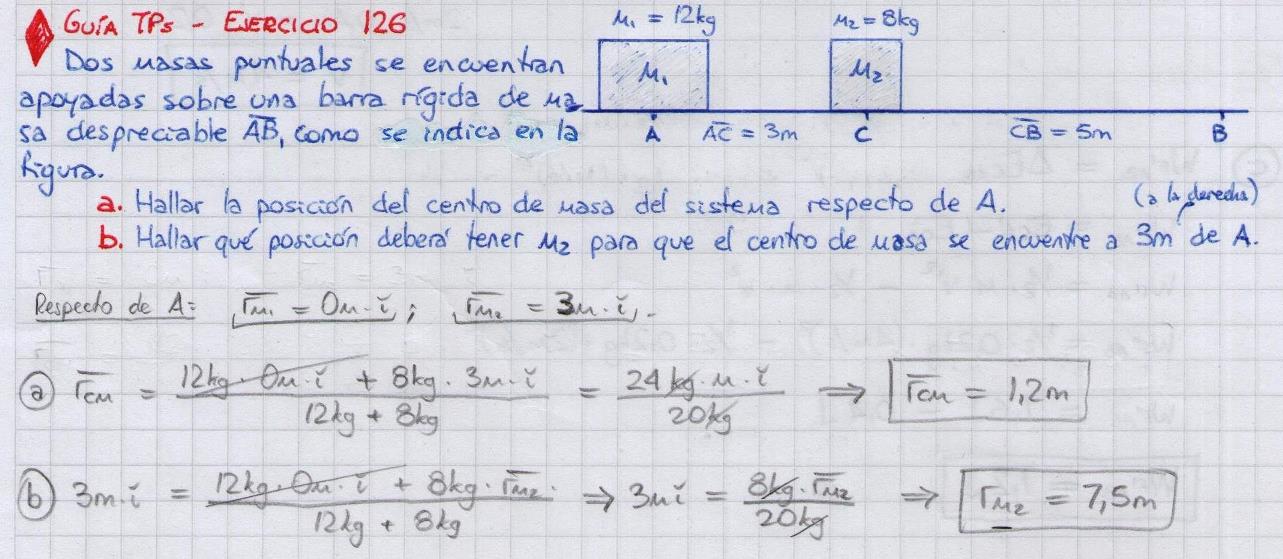 GUÍA TPs - EJERCICIO 126
Dos masas puntuales se encuentran
apoyadas sobre una barra rígida de ma
sa despreciable A̅B̅, como se indica en la
figura.
M₁ = 12kg M₂ = 8kg
M₁ M₂
A A̅C̅ = 3m C C̅B̅ = 5m B
a. Hallar la posición del centro de masa del sistema respecto de A. (a la derecha)
b. Hallar qué posición deberá tener M₂ para que el centro de masa se encuentre a 3m de A.
Respecto de A: r̅M₁ = 0m·ǐ ; r̅M₂ = 3m·ǐ.
a r̅CM = (12kg·0m·ǐ + 8kg·3m·ǐ) / (12kg + 8kg) = 24kg·m·ǐ / 20kg ⇒ r̅CM = 1,2m
b 3m·ǐ = (12kg·0m·ǐ + 8kg·r̅M₂.) / (12kg + 8kg) ⇒ 3mǐ = 8kg·r̅M₂ / 20kg ⇒ rM₂ = 7,5m